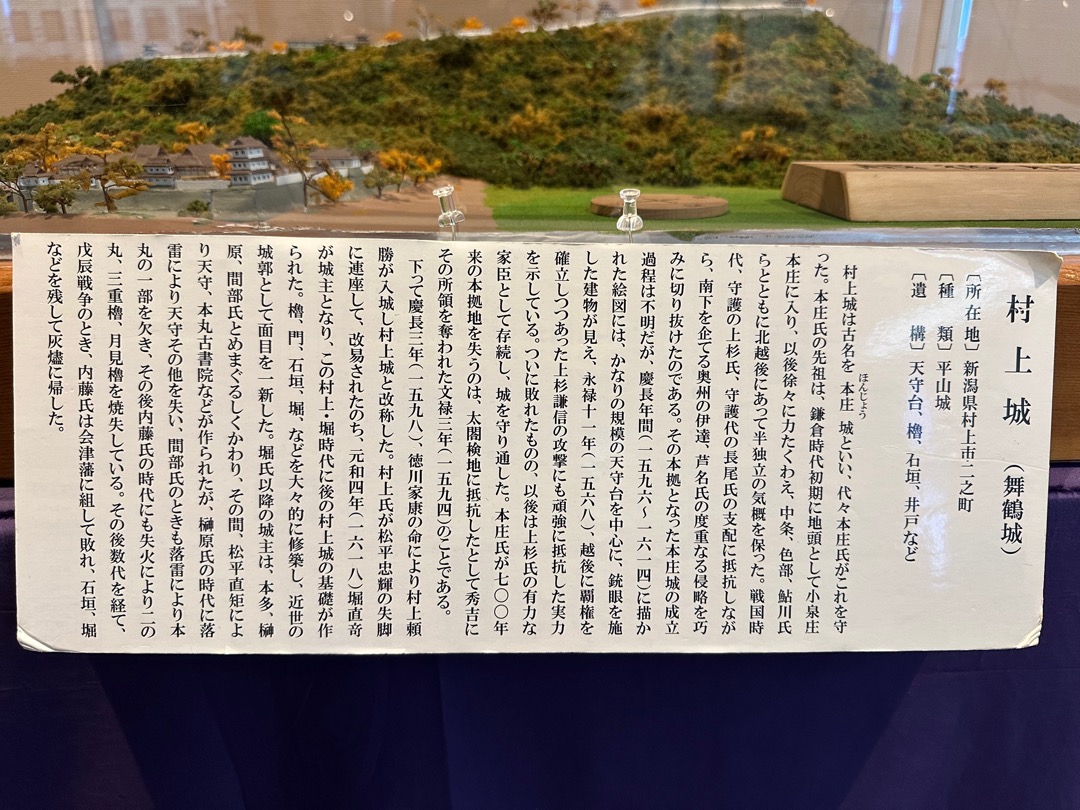 村上城(舞鶴城)
〔所在地〕新潟県村上市二之町
〔種　類〕平山城
〔遺　構〕天守台、櫓、石垣、井戸など
村上城は古名を本庄城といい、代々本庄氏がこれを守
ほんじょう
った。本庄氏の先祖は、鎌倉時代初期に地頭として小泉庄
本庄に入り、以後徐々に力たくわえ、中条、色部、鮎川氏
らとともに北越後にあって半独立の気概を保った。戦国時
代、守護の上杉氏、守護代の長尾氏の支配に抵抗しなが
ら、南下を企てる奥州の伊達、芦名氏の度重なる侵略を巧
みに切り抜けたのである。その本拠となった本庄城の成立
過程は不明だが、慶長年間(一五九六〜一六一四)に描か
れた絵図には、かなりの規模の天守台を中心に、銃眼を施
した建物が見え、永禄十一年(一五六八)、越後に覇権を
確立しつつあった上杉謙信の攻撃にも頑強に抵抗した実力
を示している。ついに敗れたものの、以後は上杉氏の有力な
家臣として存続し、城を守り通した。本庄氏が七〇〇年
来の本拠地を失うのは、太閤検地に抵抗したとして秀吉に
その所領を奪われた文禄三年(一五九四)のことである。
下って慶長三年(一五九八)、徳川家康の命により村上頼
勝が入城し村上城と改称した。村上氏が松平忠輝の失脚
に連座して、改易されたのち、元和四年(一六一八)堀直竒
が城主となり、この村上・堀時代に後の村上城の基礎が作
られた。櫓、門、石垣、堀、などを大々的に修築し、近世の
城郭として面目を一新した。堀氏以降の城主は、本多、榊
原、間部氏とめまぐるしくかわり、その間、松平直矩によ
り天守、本丸古書院などが作られたが、榊原氏の時代に落
雷により天守その他を失い、間部氏のときも落雷により本
丸の一部を欠き、その後内藤氏の時代にも失火により二の
丸、三重櫓、月見櫓を焼失している。その後数代を経て、
戊辰戦争のとき、内藤氏は会津藩に組して敗れ、石垣、堀
などを残して灰燼に帰した。